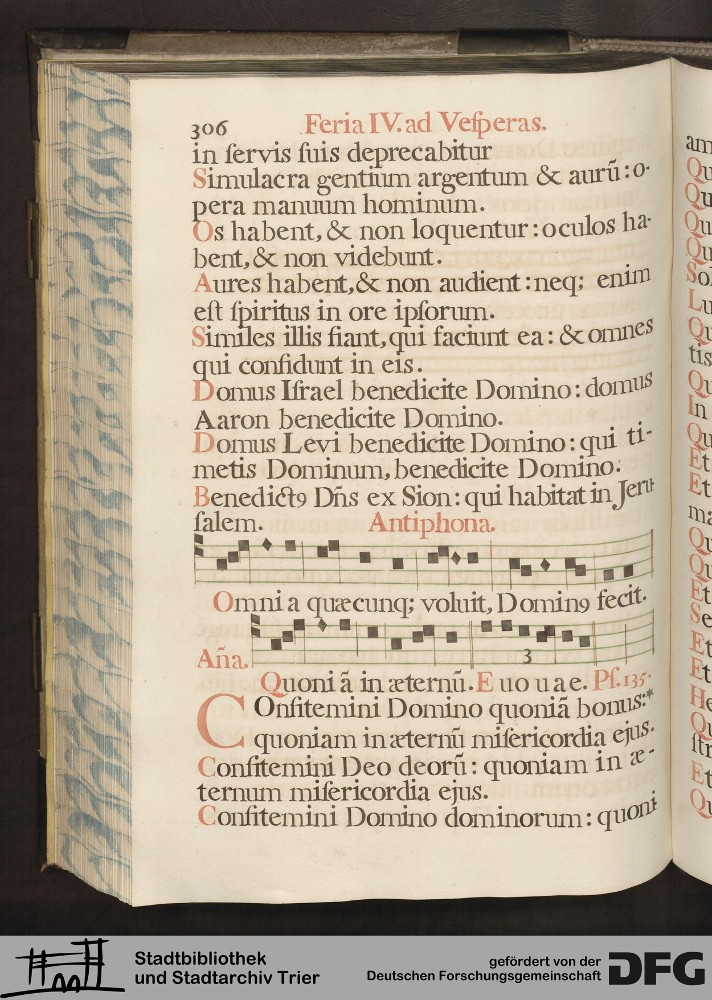 306 Feria IV. ad Vesperas.
in servis suis deprecabitur
Simulacra gentium argentum & aurũ: o-
pera manuum hominum.
Os habent, & non loquentur: oculos ha-
bent, & non videbunt.
Aures habent, & non audient: neq; enim
est spiritus in ore ipsorum.
Similes illis fiant, qui faciunt ea: & omnes
qui confidunt in eis.
Domus Israel benedicite Domino: domus
Aaron benedicite Domino.
Domus Levi benedicite Domino: qui ti-
metis Dominum, benedicite Domino.
Benedictꝰ Dñs ex Sion: qui habitat in Jeru-
salem. Antiphona.
Omnia quæcunq; voluit, Dominꝰ fecit.
3
Aña.
Quoniã in æternũ. E uo u a e. Ps. 135.
Confitemini Domino quoniã bonus:*
quoniam in æternũ misericordia ejus.
Confitemini Deo deorũ: quoniam in æ-
ternum misericordia ejus.
Confitemini Domino dominorum: quoni
am
Qu
Qu
Qu
Qu
Sol
Lu
Qu
tis
Qu
In
Qu
Et
Et
ma
Qu
Qu
Et
Se
Et
Et
He
Qu
str
Et
Qu
Stadtbibliothek
und Stadtarchiv Trier
gefördert von der
Deutschen Forschungsgemeinschaft
DFG